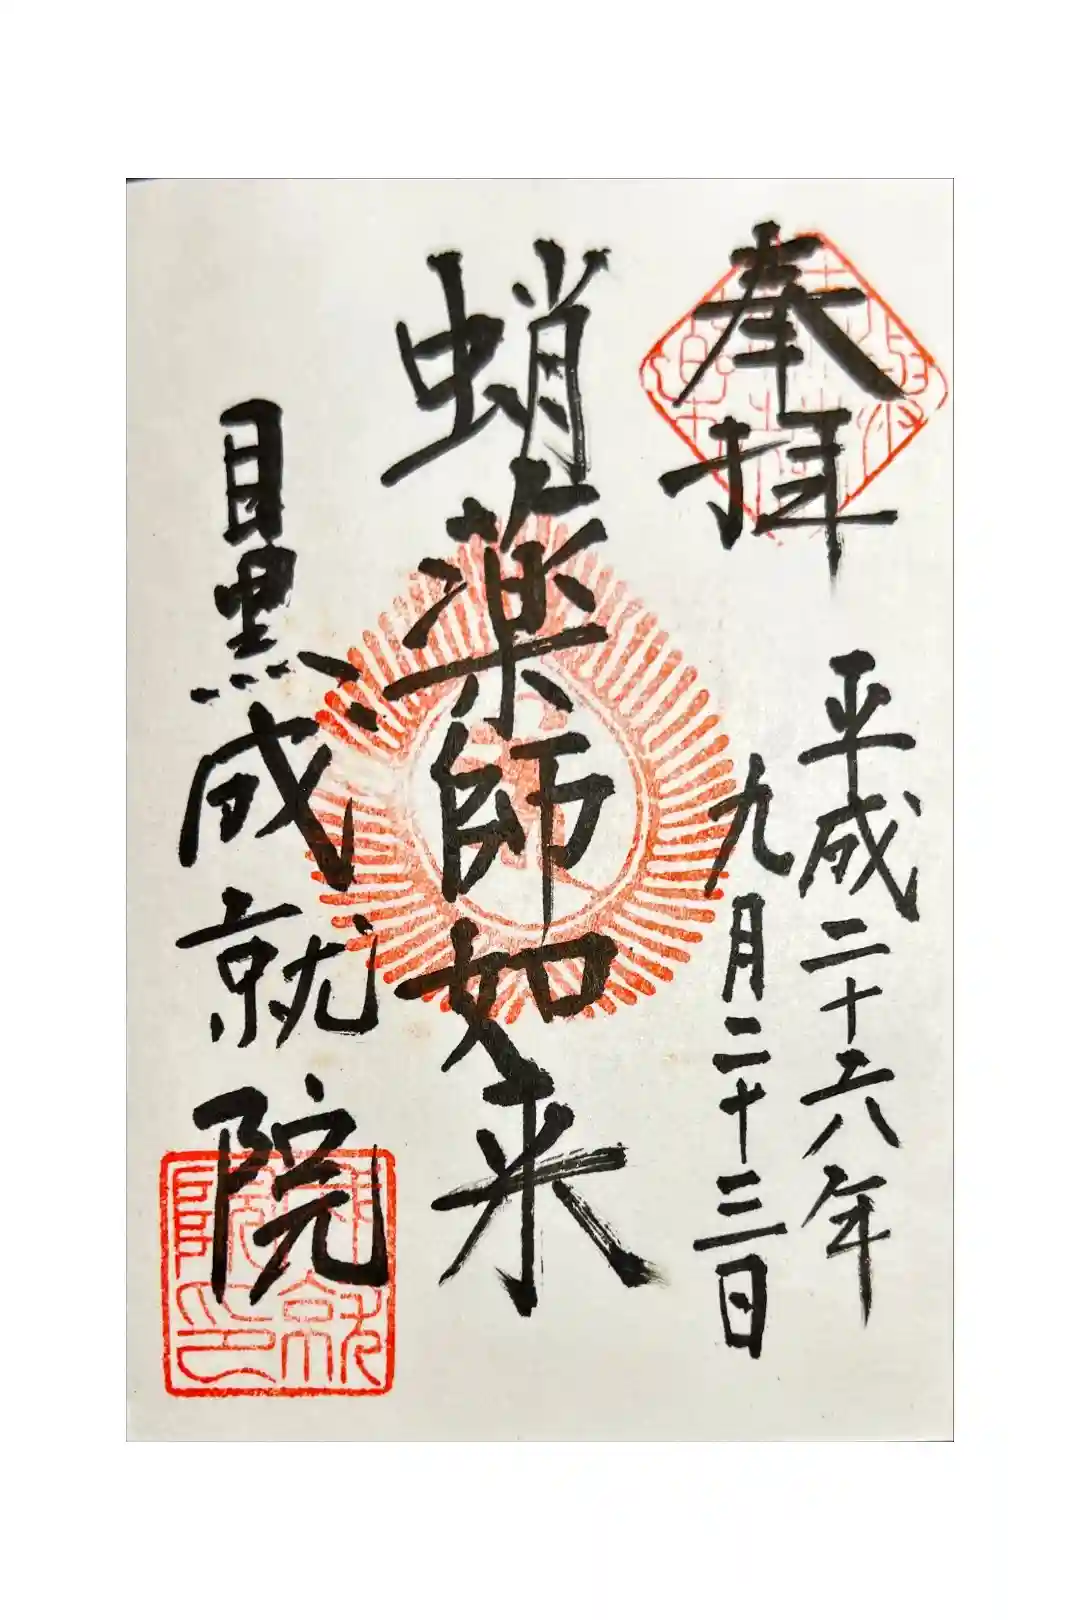 奉拝
平成二十六年
九月二十三日
蛸薬師如来
目黒成就院
成就院印